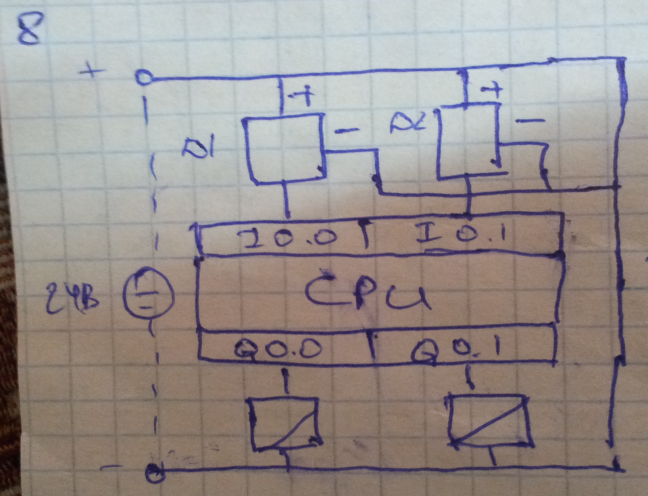 8
+
+ +
D1 - D2 -
I 0.0 I 0.1
24В CPU
Q0.0 Q0.1
-